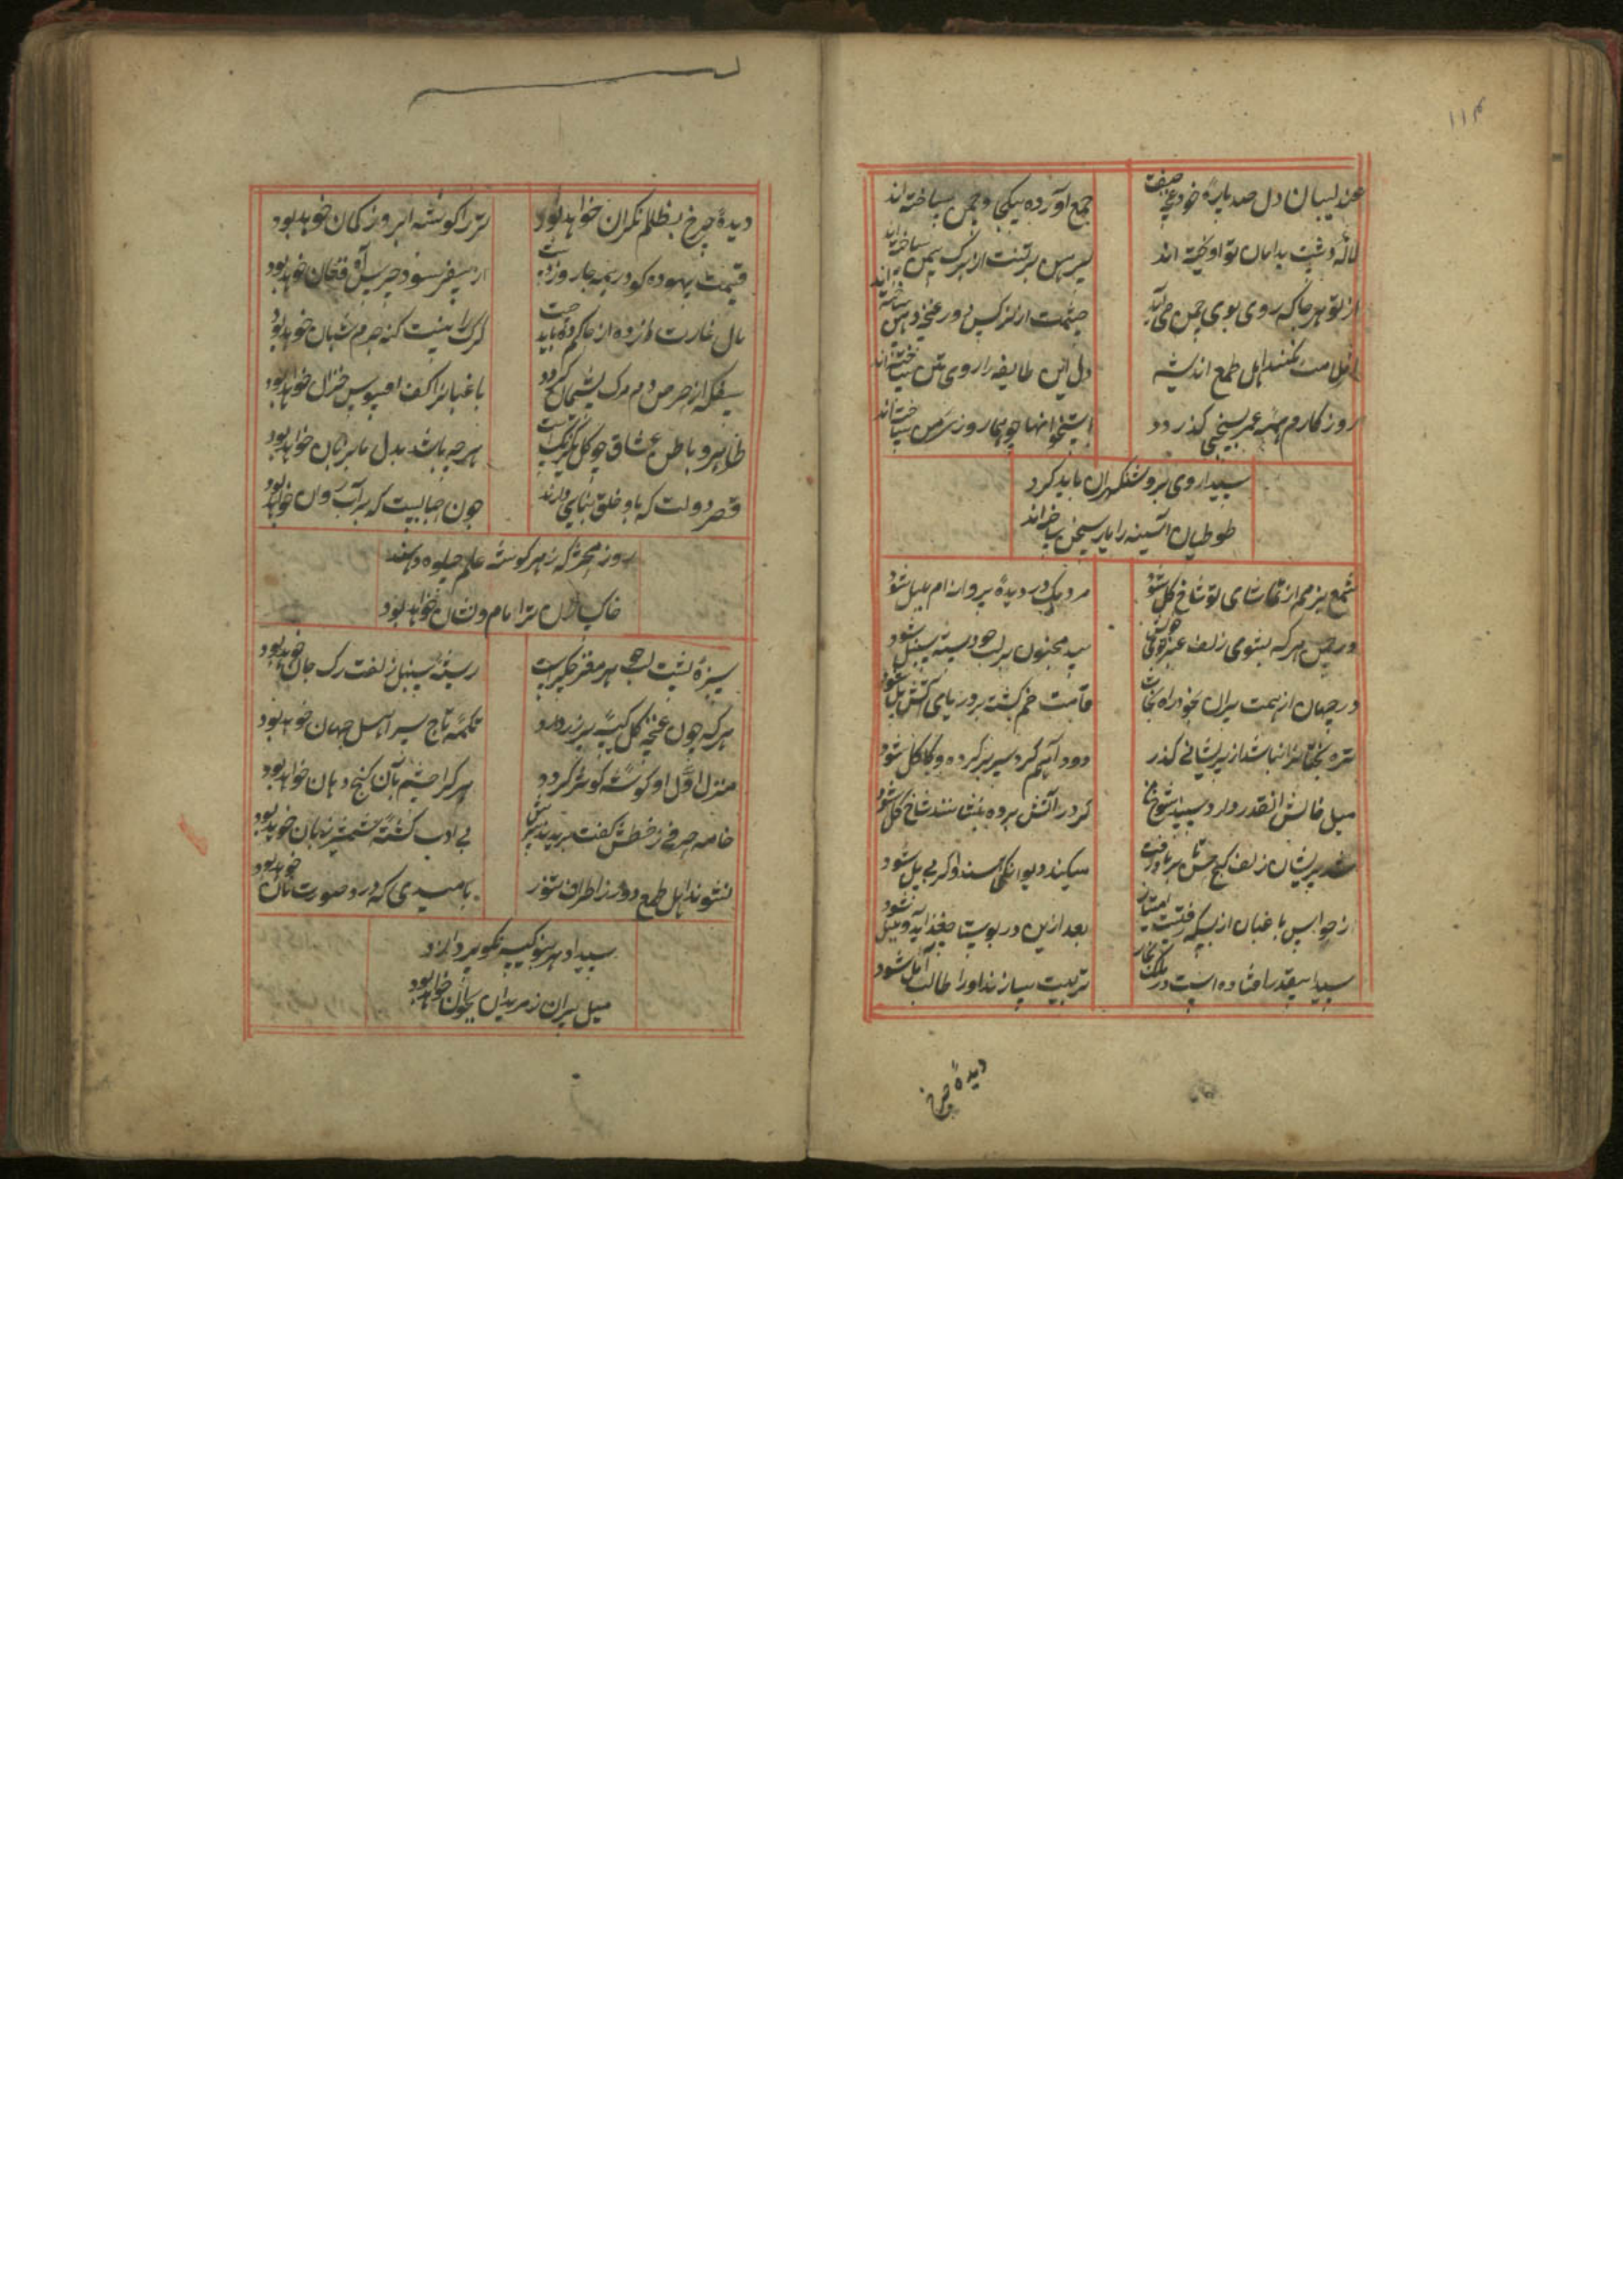 ۱۱۴
عندلیبان دل صد پارهٔ خود غنچه صفت
جمع آورده بیکجا و چمن ساخته‌اند
لاله دشت بدامان تو آویخته اند
پیرهن بر تنت از برک سمن ساخته‌اند
از تو هر جا که روی بوی چمن می‌آید
چشمت از نرکس و از غنچه دهن ساخته‌اند
از ملامت نکنند اهل طمع اندیشه
دل این طایفه را روی تن ساخته‌اند
روزکارم همه عمر بسختی کذرد
استخوانها چو هما روزی من ساخته‌اند
سیدا روی بروشنکهران باید کرد
طوطیان آیینه را یار سخن ساخته‌اند
شمع بزمم از تماشای تو شاخ کل شود
مردمک در دیدهٔ پروانه‌ام بلبل شود
در چمن هر که بشوی زلف عنبر بوی خویش
بید مجنون بر لب جو دستهٔ سنبل شود
در جهان از همت پیران بجو راه نجات
قامت خم کشته بر دریای آتش پل شود
تیره بختانرا نباشد از پریشانی کذر
دود آهم کرد سر برکرده و کاکل شود
میل خاطرش آنقدر دارد سپند شوخ ما
کر در آتش برده بنشانند شاخ کل شود
شد پریشان زلف کج بحثش تا بر باد رفت
میکند دیوانکی آسند واکر بی پل شود
از حواس باغبان از بسکه رفتست
بعد ازین در بوستان جغد آید و بلبل شود
سیدا بیقدر افتاده است در ملک بخار
تربیت سازند او را طالب آمل شود
دیدهٔ چرخ
دیدهٔ چرخ بظلم نکران خواهد بود
تیر را کوشه ابروز کمان خواهد بود
قیمت بیهوده کو در همه جا روزدست
از سفر سود جرس آه و فغان خواهد بود
مال غارت زده از حاکم ده باید جست
کرک را نیست کنه جرم شبان خواهد بود
سفله از حرص دم مرک پشیمان کردد
باغبانرا کف افسوس خزان خواهد بود
ظاهر و باطن عشاق چو کل یکرنکست
هر چه باشد بدل ما بزبان خواهد بود
قصر دولت که باو خلق بنایی دارند
چون حبابیست که بر آب روان خواهد بود
روز محشر که ز هر کوشه علم جلوه دهند
خاکساران ترا نام و نشان خواهد بود
سبزهٔ پشت لب هر مفز جکراست
ریشهٔ سنبل زلفت رک جان خواهد بود
هر که چون غنچه کل کیسه پر زر دارد
تکمهٔ تاج سر اهل جهان خواهد بود
منزل اول او کوشهٔ کوثر کردد
هر کرا چشم بآن کنج دهان خواهد بود
خامه حرفی ز خطش کفت بریدند سرش
بی ادب کشتهٔ شمشیر زبان خواهد بود
نشوند اهل طمع دور ز اطراف تنور
بامیدی که درو صورت نان خواهد بود
سیدا هر سو کیسه نکو پر دارد
میل پیران ز مریدان بجوان خواهد بود